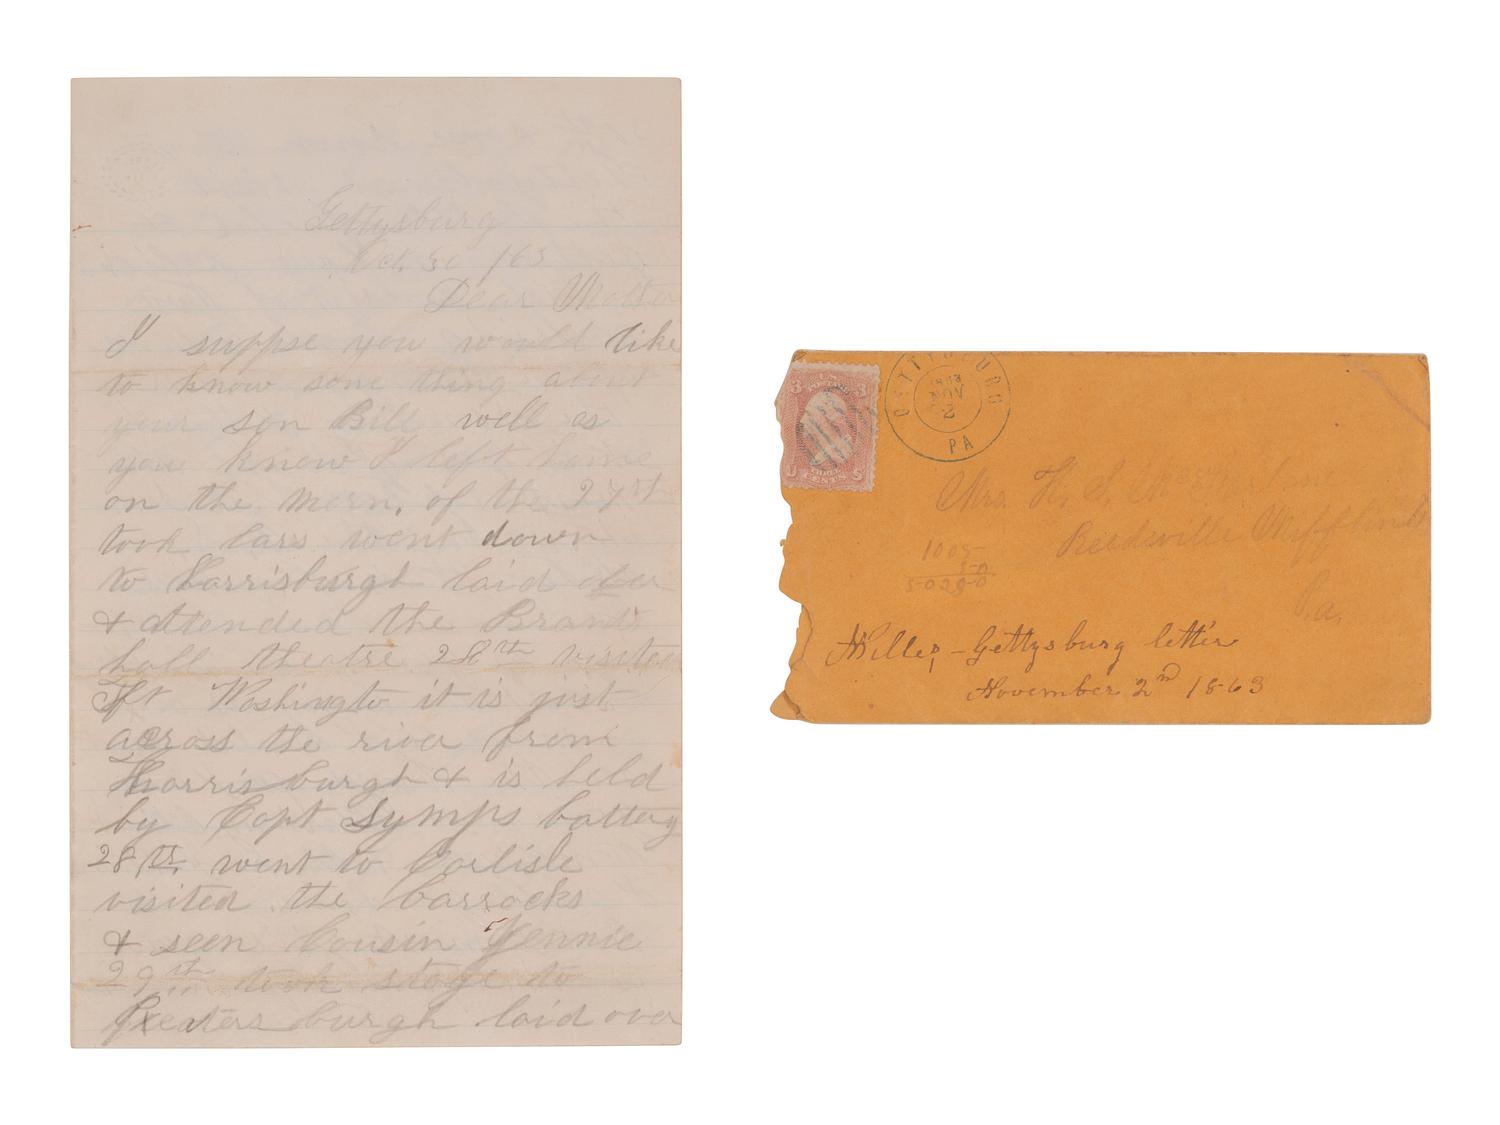 Gettysburg
Oct. 30 /63
Dear Mother
I suppse you would like
to know some thing about
your son Bill well as
you know I left home
on the morn, of the 27st
took cars went down
to Harrisburgh laid over
& attended the Brants
hall theatre 28th visited
Ft Washington it is just
across the river from
Harris burgh & is held
by Capt Symps battery
28th went to Carlisle
visited the barrocks
& seen Cousin Jennie
29th took stage to
Peaters burgh laid over
U.S. POSTAGE
3 3
THREE CENTS
U S
GETTYSBURG
1863
NOV
2
PA
Mrs. H. S.
Reedsville Mifflin Co
Pa.
1005
50
50250
Miller, - Gettysburg letter
November 2nd 1863